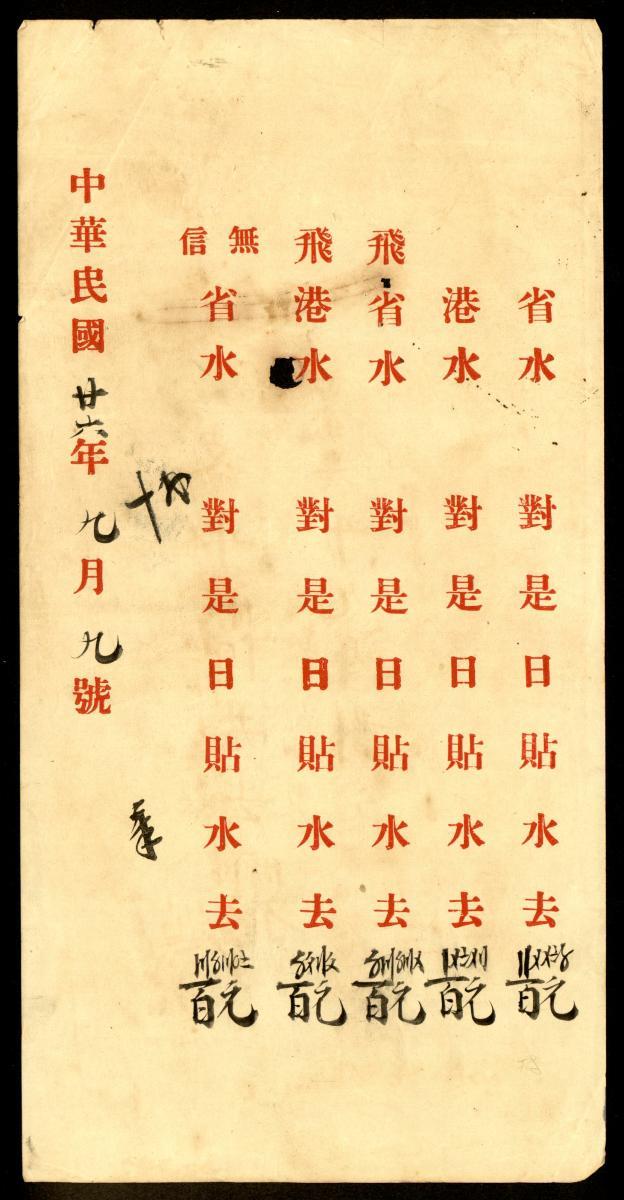 省水 對是日貼水去
百元
港水 對是日貼水去
百元
飛省水 對是日貼水去
百元
飛港水 對是日貼水去
百元
無信省水 對是日貼水去
百元
中華民國廿六年九月九號